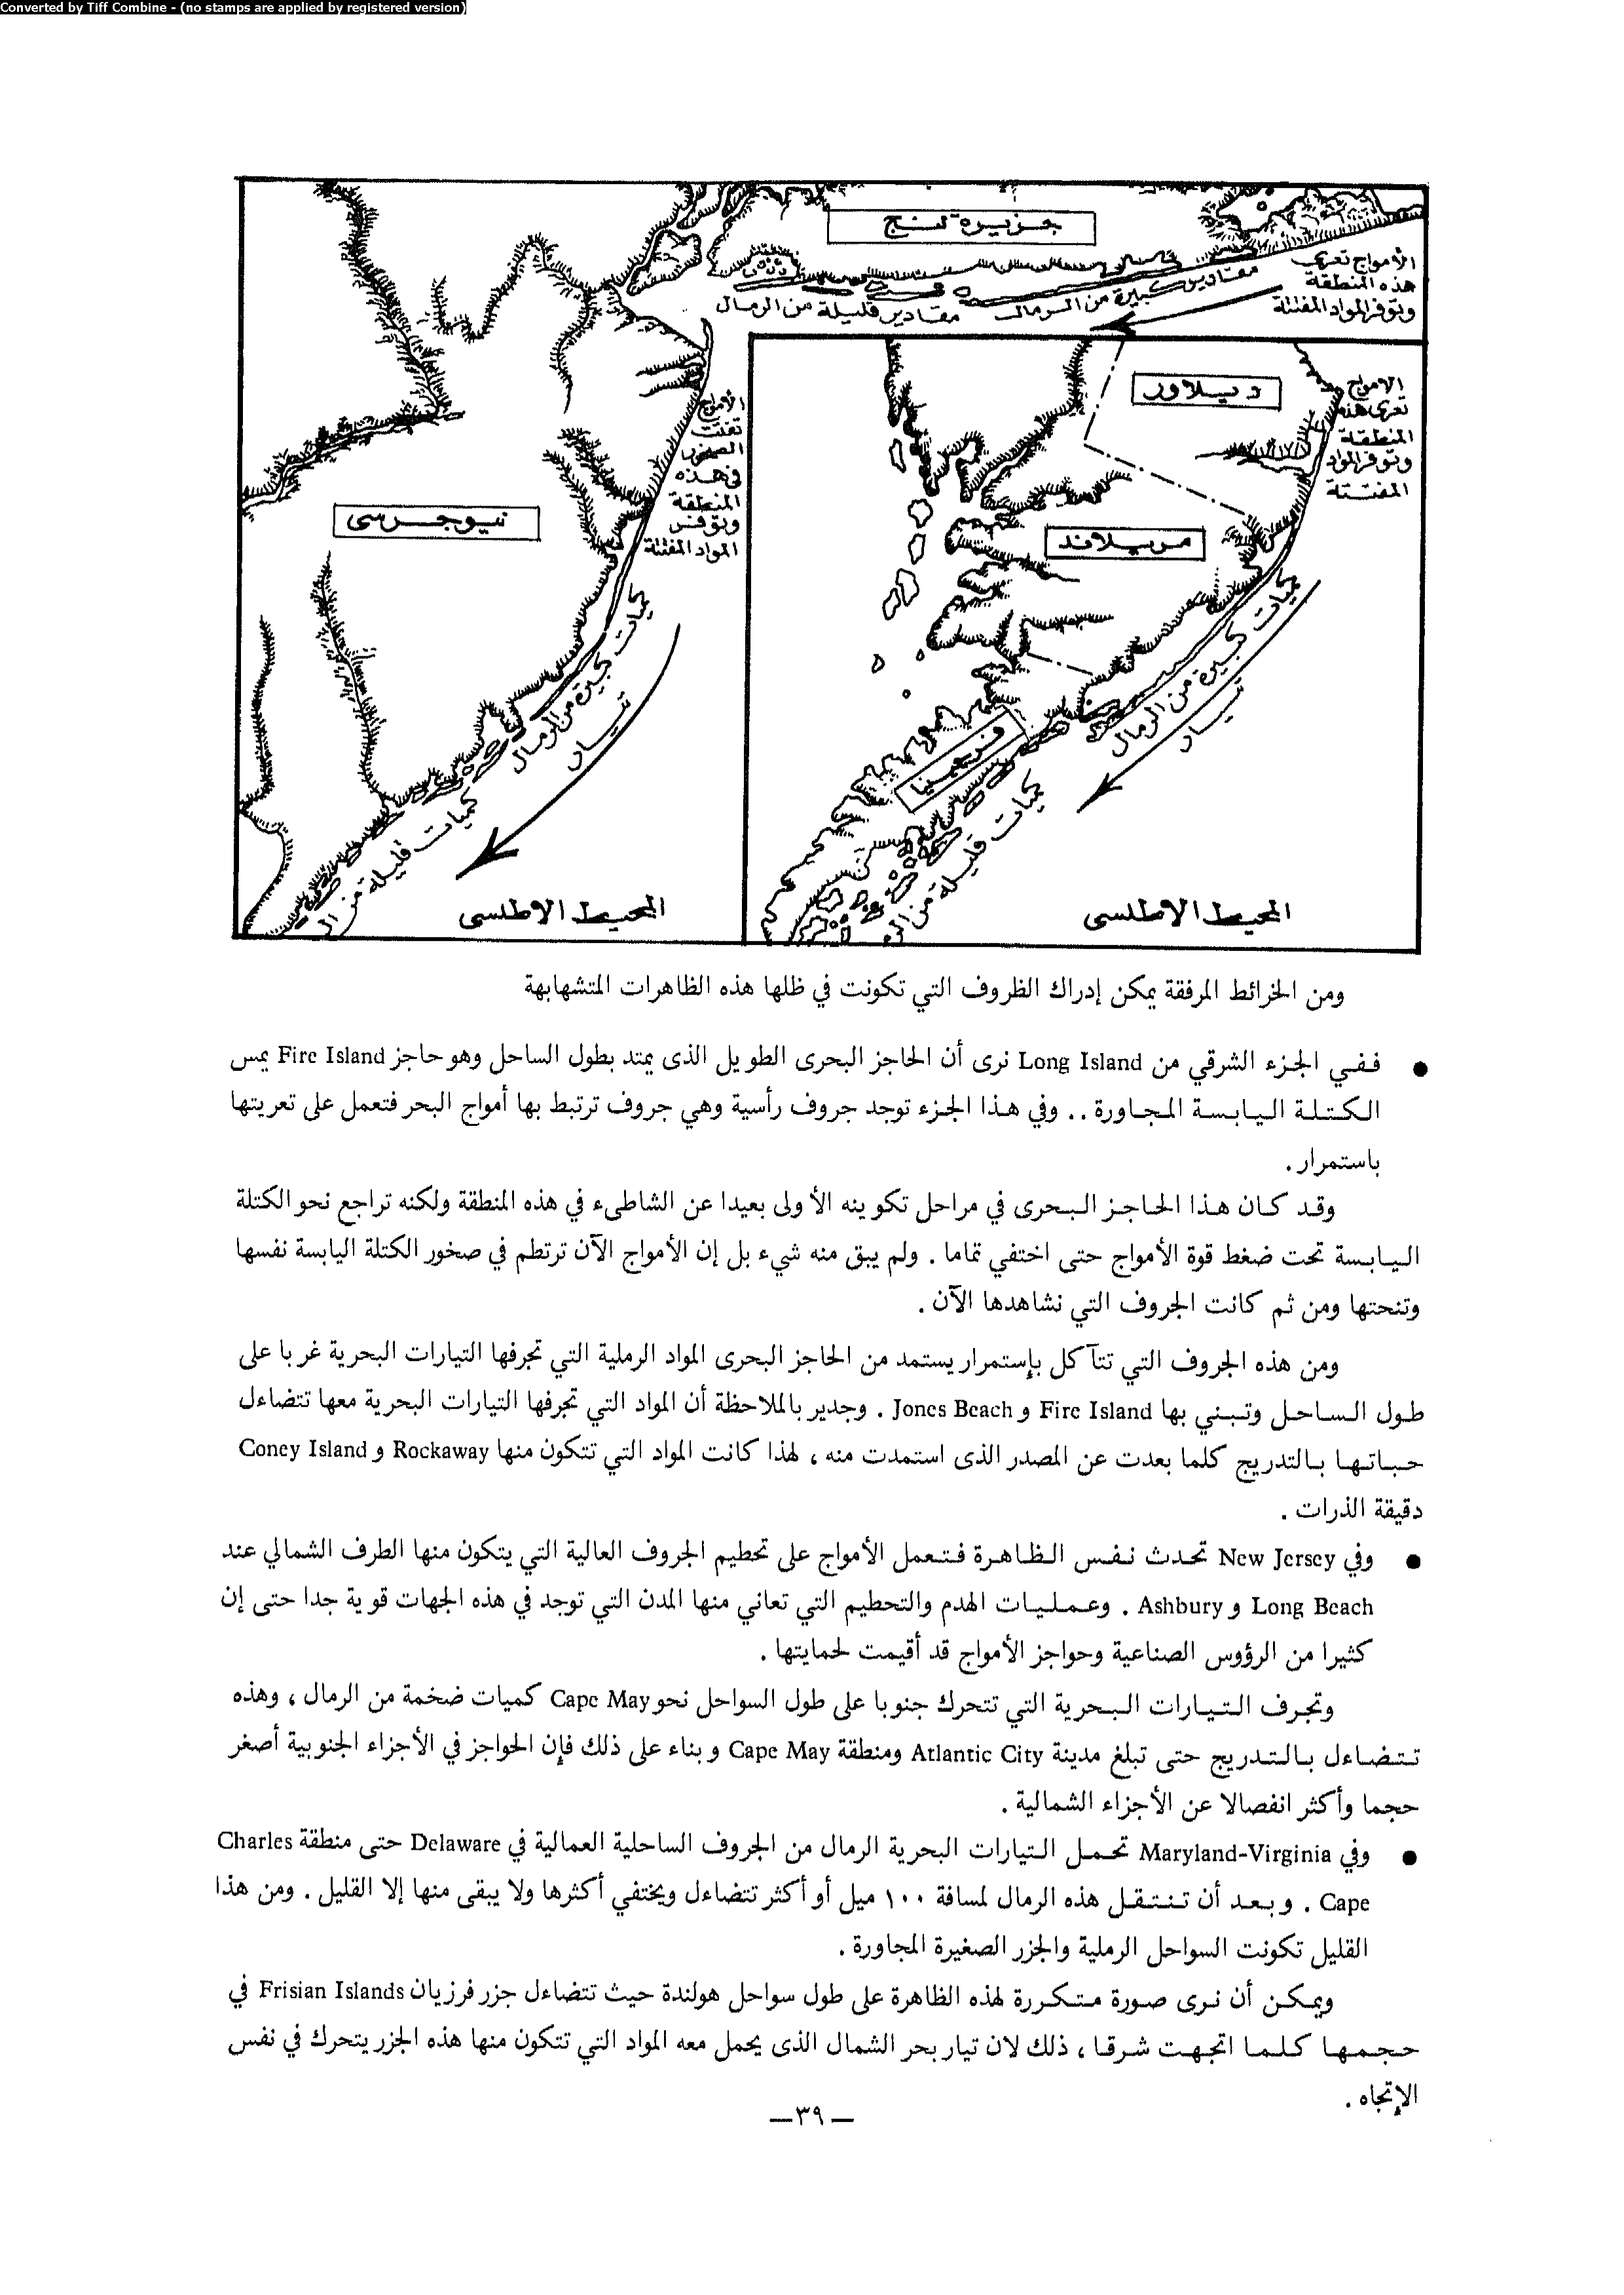 Converted by Tiff Combine - (no stamps are applied by registered version)
جزيرة لنج
الأمواج تعرى
هذه المنطقة
وتوفر المواد المفتتة
مقادير كبيرة من الرمال
مقادير قليلة من الرمال
الأمواج
تفتت
الصخور
فى هذه
المنطقة
وتوفر
المواد المفتتة
نيوجرسى
كميات كبيرة من الرمال
تيار
كميات قليلة من الر
المحيط الاطلسى
ديلاور
الامواج
تعرى هذه
المنطقة
وتوفر المواد
المفتتة
مريلاند
فرجينيا
كميات كبيرة من الرمال
تيار
كميات قليلة من الر
المحيط الاطلسى
ومن الخرائط المرفقة يمكن إدراك الظروف التي تكونت في ظلها هذه الظاهرات المتشهابهة
● ففي الجزء الشرقي من Long Island نرى أن الحاجز البحرى الطويل الذى يمتد بطول الساحل وهو حاجز Fire Island يمس
الكتلة اليابسة المجاورة .. وفي هذا الجزء توجد جروف رأسية وهي جروف ترتبط بها أمواج البحر فتعمل على تعريتها
باستمرار .
وقد كان هذا الحاجز البحرى في مراحل تكوينه الأولى بعيدا عن الشاطىء في هذه المنطقة ولكنه تراجع نحو الكتلة
اليابسة تحت ضغط قوة الأمواج حتى اختفي تماما . ولم يبق منه شيء بل إن الأمواج الآن ترتطم في صخور الكتلة اليابسة نفسها
وتنحتها ومن ثم كانت الجروف التي نشاهدها الآن .
ومن هذه الجروف التي تتآكل بإستمرار يستمد من الحاجز البحرى المواد الرملية التي تجرفها التيارات البحرية غربا على
طول الساحل وتبني بها Fire Island و Jones Beach . وجدير بالملاحظة أن المواد التي تجرفها التيارات البحرية معها تتضاءل
حباتها بالتدريج كلما بعدت عن المصدر الذى استمدت منه ، لهذا كانت المواد التي تتكون منها Rockaway و Coney Island
دقيقة الذرات .
● وفي New Jersey تحدث نفس الظاهرة فتعمل الأمواج على تحطيم الجروف العالية التي يتكون منها الطرف الشمالي عند
Long Beach و Ashbury . وعمليات الهدم والتحطيم التي تعاني منها المدن التي توجد في هذه الجهات قوية جدا حتى إن
كثيرا من الرؤوس الصناعية وحواجز الأمواج قد أقيمت لحمايتها .
وتجرف التيارات البحرية التي تتحرك جنوبا على طول السواحل نحو Cape May كميات ضخمة من الرمال ، وهذه
تتضاءل بالتدريج حتى تبلغ مدينة Atlantic City ومنطقة Cape May وبناء على ذلك فإن الحواجز في الأجزاء الجنوبية أصغر
حجما وأكثر انفصالا عن الأجزاء الشمالية .
● وفي Maryland-Virginia تحمل التيارات البحرية الرمال من الجروف الساحلية العمالية في Delaware حتى منطقة Charles
Cape . وبعد أن تنتقل هذه الرمال لمسافة ١٠٠ ميل أو أكثر تتضاءل ويختفي أكثرها ولا يبقى منها إلا القليل . ومن هذا
القليل تكونت السواحل الرملية والجزر الصغيرة المجاورة .
ويمكن أن نرى صورة متكررة لهذه الظاهرة على طول سواحل هولندة حيث تتضاءل جزر فرزيان Frisian Islands في
حجمها كلما اتجهت شرقا ، ذلك لان تيار بحر الشمال الذى يحمل معه المواد التي تتكون منها هذه الجزر يتحرك في نفس
الإتجاه .
— ٣٩ —